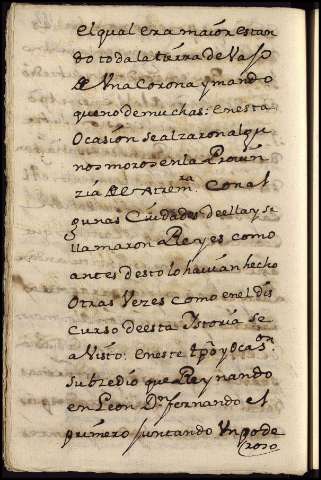 el qual era maior estan
do toda la tierra devaso
de Una Corona y mando
que no de muchas: en esta
Ocasión se alzaron algu
nos moros en la Provin
zia de extrem.ra Con al
gunas Ciudades de ella y se
llamaron a Reyes como
antes desto lo havian hecho
Otras Vezes como en el dis
curso de esta Istoria se
a Visto: en este tpõ y Ocas.on
subcedio que Reynando
en Leon D.n fernando el
primero juntando Un pode
roso